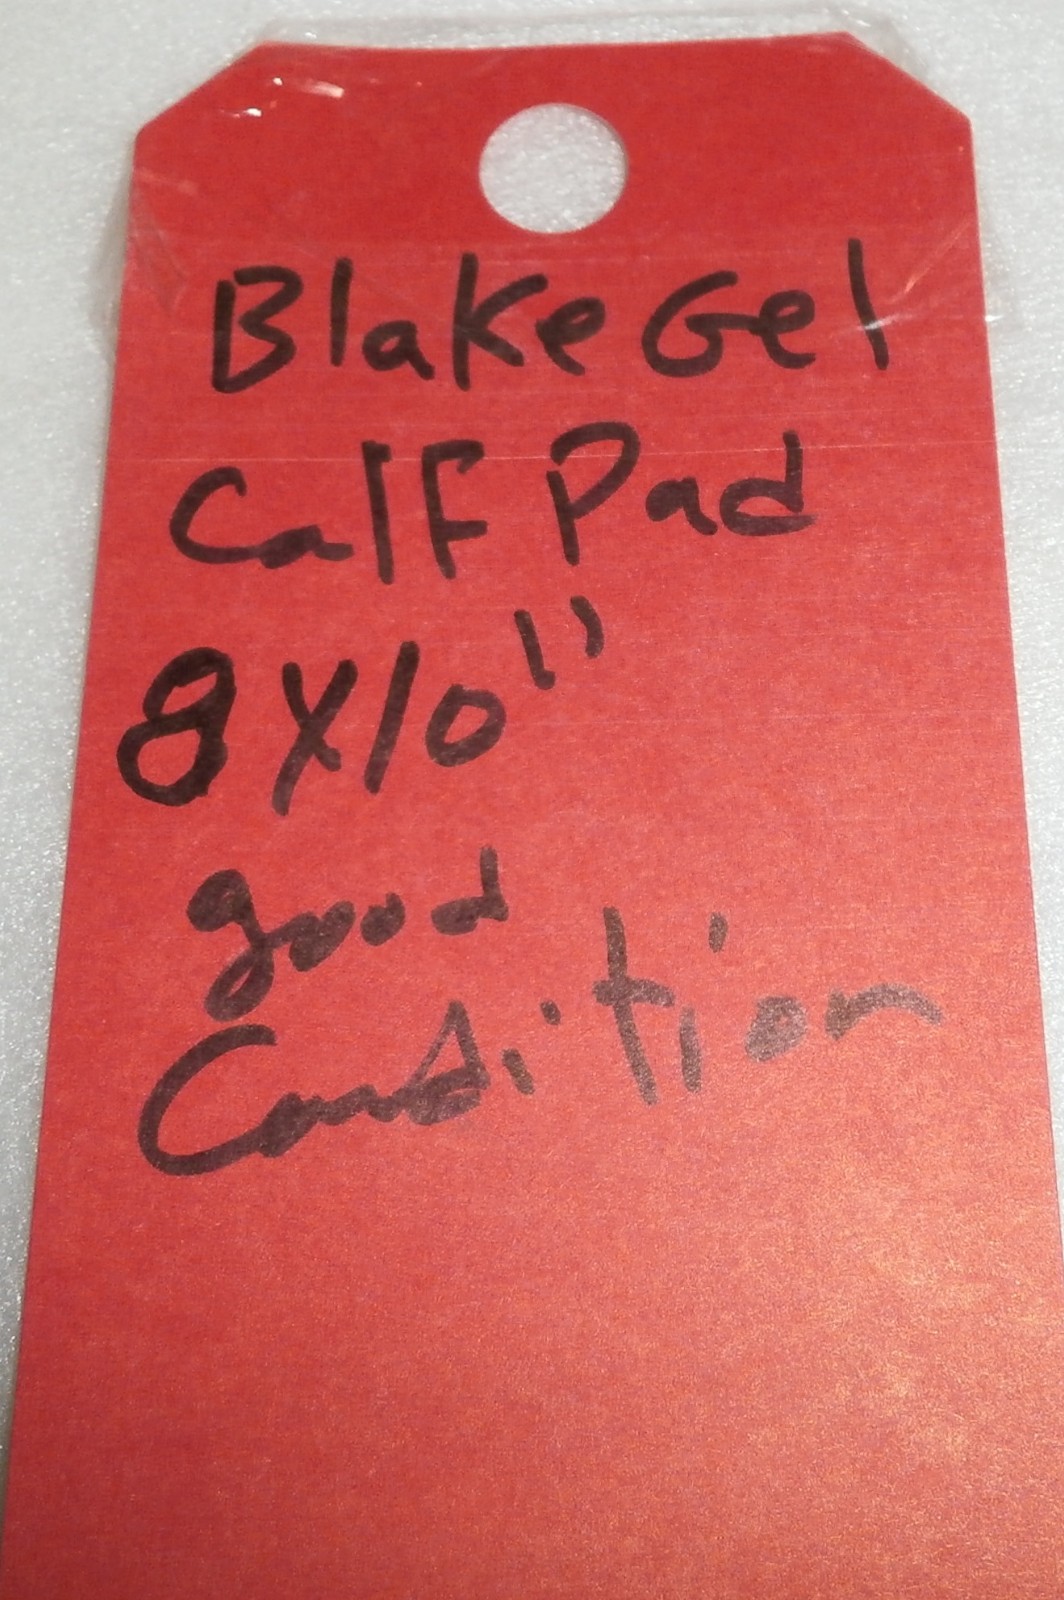 Blake Gel
Calf Pad
8x10"
good
Condition